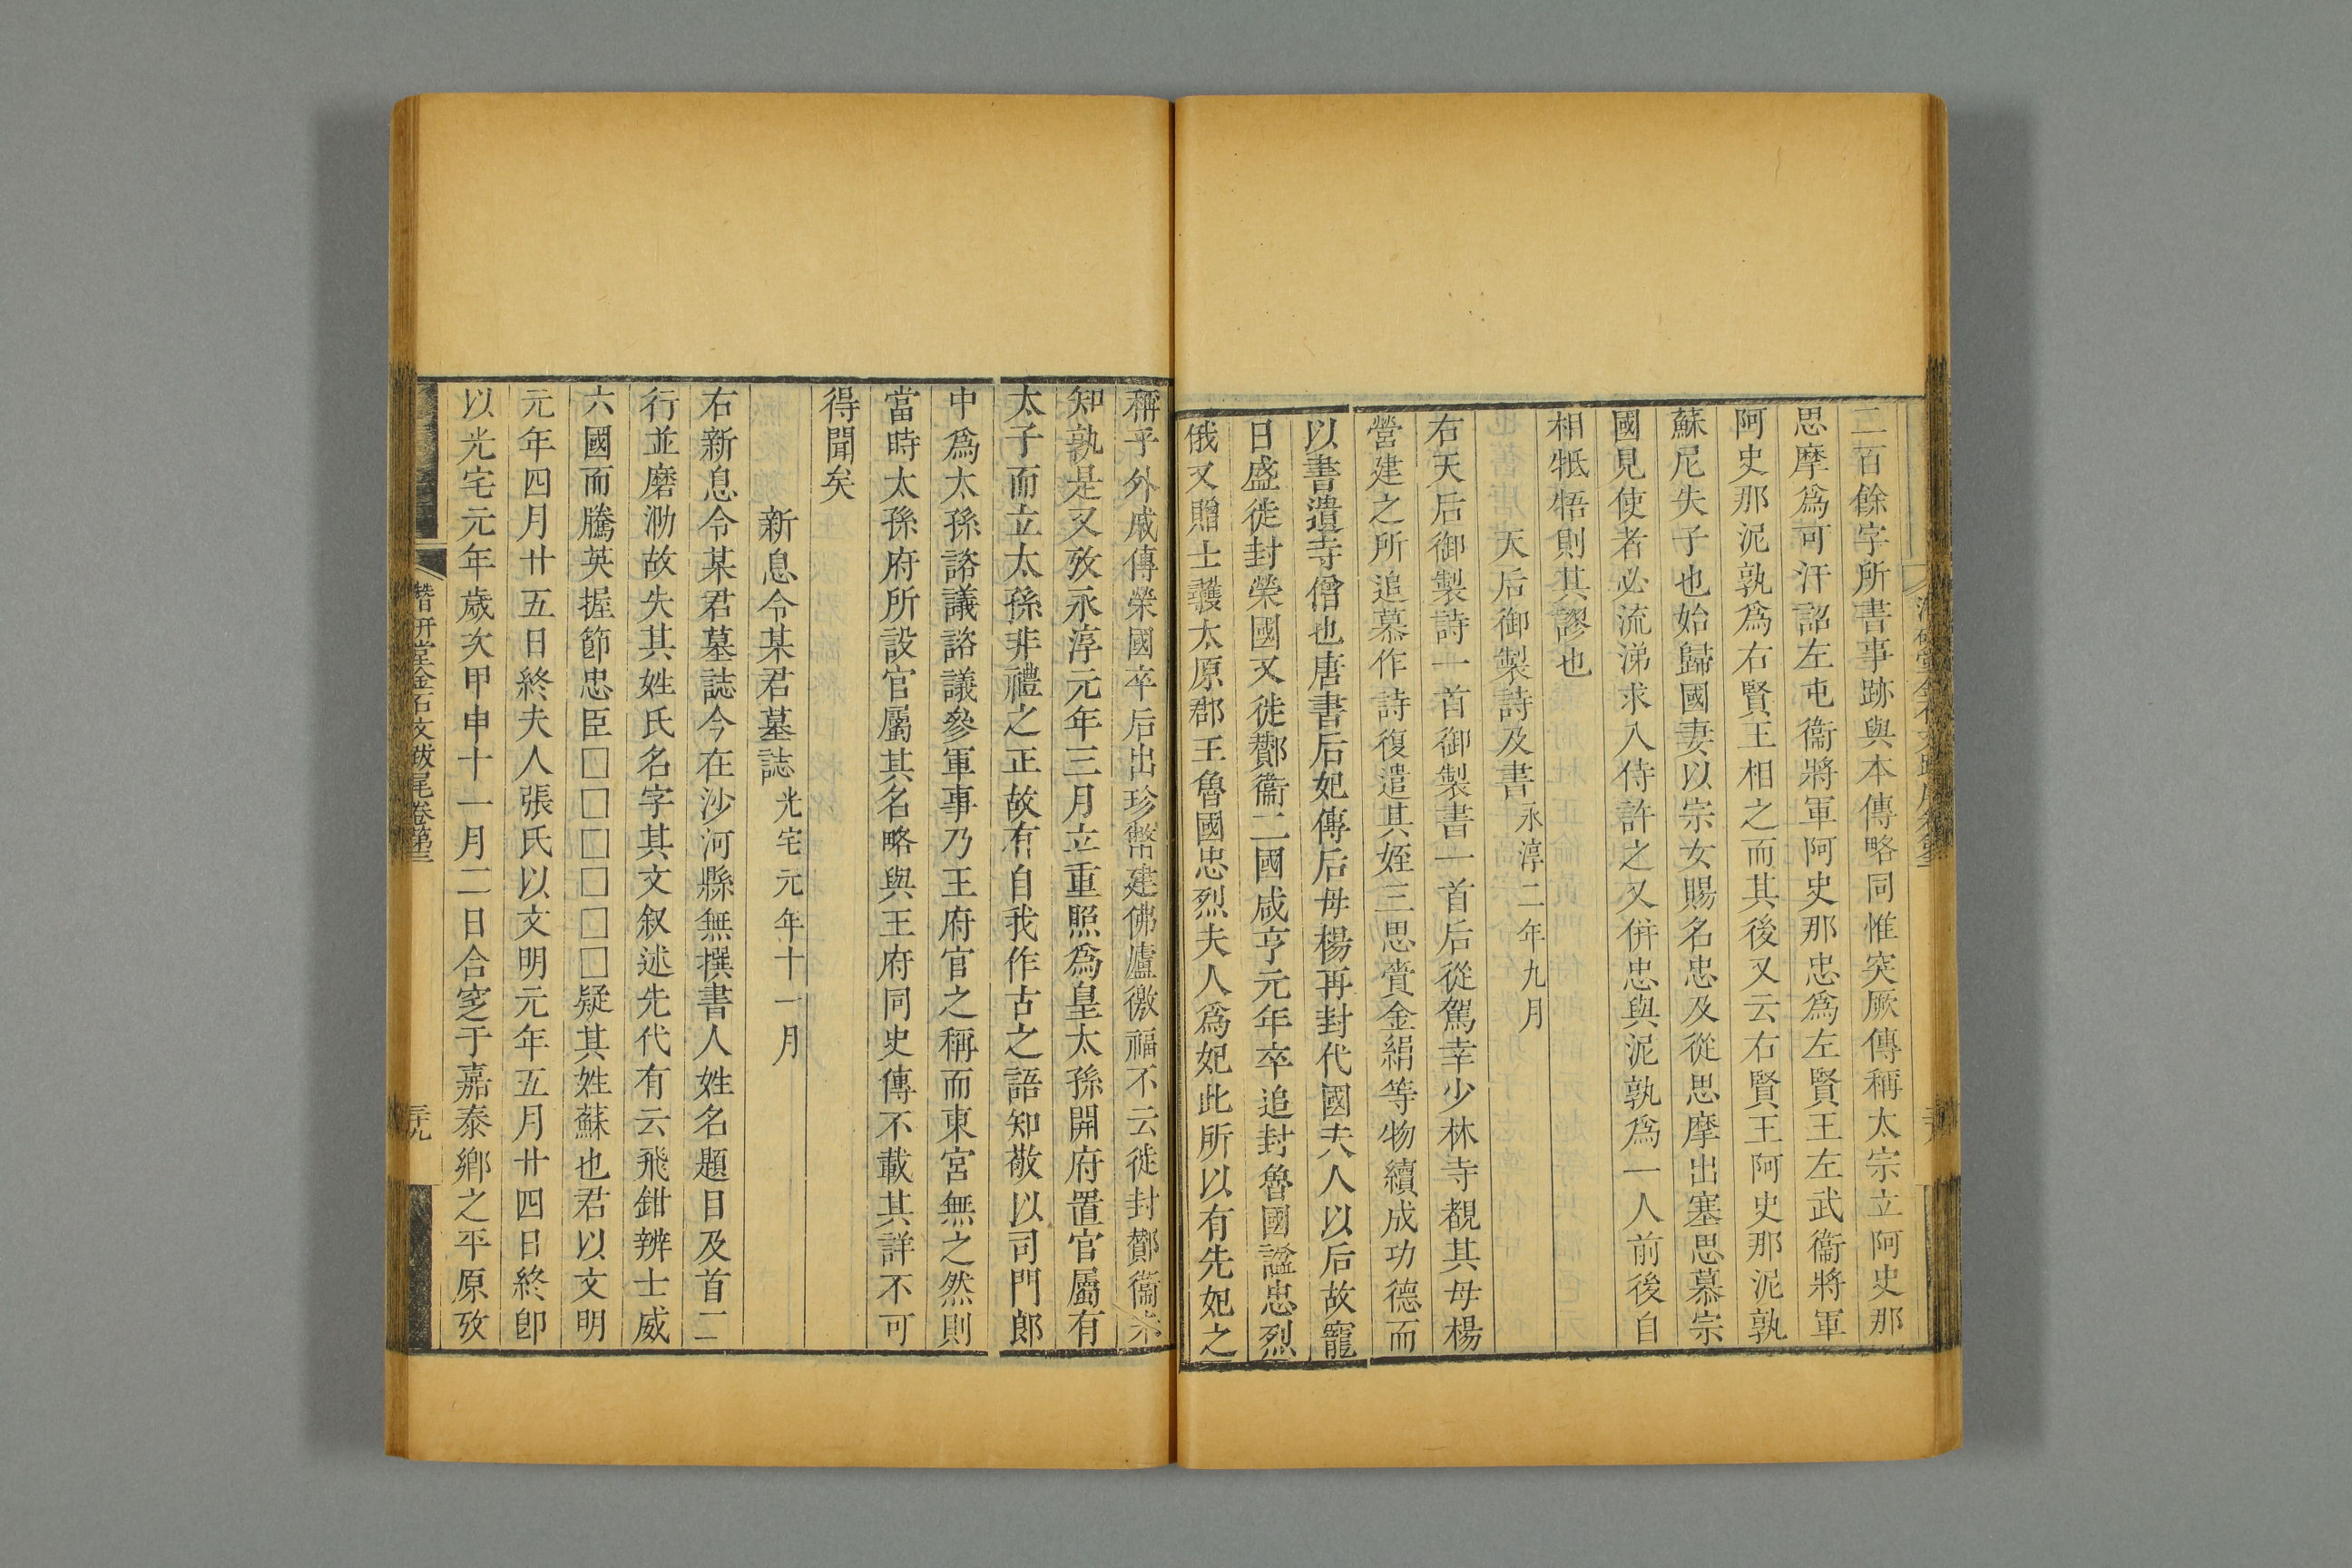 二百餘字所書事跡與本傳略同惟突厥傳稱太宗立阿史那
思摩爲可汗詔左屯衞將軍阿史那忠爲左賢王左武衞將軍
阿史那泥孰爲右賢王相之而其後又云右賢王阿史那泥孰
蘇尼失子也始歸國妻以宗女賜名忠及從思摩出塞思慕宗
國見使者必流涕求入侍許之又併忠與泥孰爲一人前後自
相牴牾則其謬也
天后御製詩及書永淳二年九月
右天后御製詩一首御製書一首后從駕幸少林寺覩其母楊
營建之所追慕作詩復遣其姪三思賷金絹等物續成功德而
以書遺寺僧也唐書后妃傳后母楊再封代國夫人以后故寵
日盛徙封榮國又徙酇衞二國咸亨元年卒追封魯國諡忠烈
俄又贈士彠太原郡王魯國忠烈夫人爲妃此所以有先妃之
稱乎外戚傳榮國卒后出珍幣建佛廬徼福不云徙封酇衞未
知孰是又攷永淳元年三月立重照爲皇太孫開府置官屬有
太子而立太孫非禮之正故有自我作古之語知敬以司門郎
中爲太孫諮議諮議參軍事乃王府官之稱而東宮無之然則
當時太孫府所設官屬其名略與王府同史傳不載其詳不可
得聞矣
新息令某君墓誌光宅元年十一月
右新息令某君墓誌今在沙河縣無撰書人姓名題目及首二
行並磨泐故失其姓氏名字其文叙述先代有云飛鉗辨士威
六國而騰英握節忠臣□□□□□□疑其姓蘇也君以文明
元年四月廿五日終夫人張氏以文明元年五月廿四日終卽
以光宅元年歲次甲申十一月二日合窆于嘉泰鄉之平原攷
潛研堂金石文跋尾卷第三